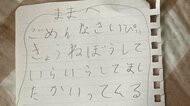 ままへ
ごめんなさいぴ!!
きょうねぼうして
いらいらしてまし
たかいってくる